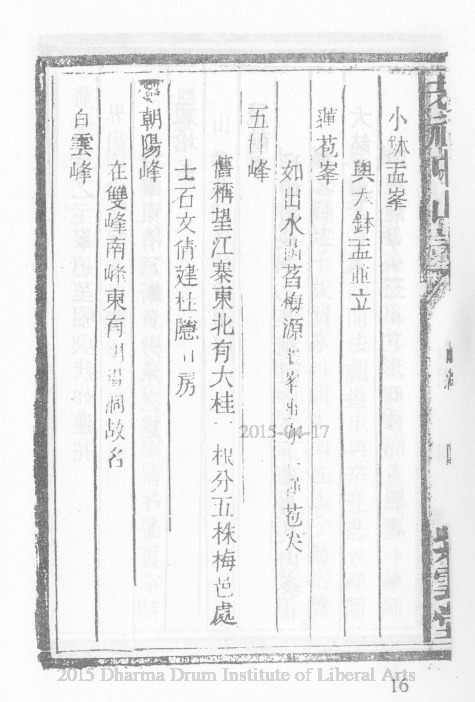 小鉢盂峯
與大鉢盂並立
蓮苞峯
如出水菡萏梅源 峯出 苞尖
五桂峰
舊稱望江寨東北有大桂一根分五株梅邑處
士石文倩建桂隱 房
朝陽峰
在雙峰南峰東有朝陽洞故名
白雲峰
2015-04-17
2015 Dharma Drum Institute of Liberal Arts
16